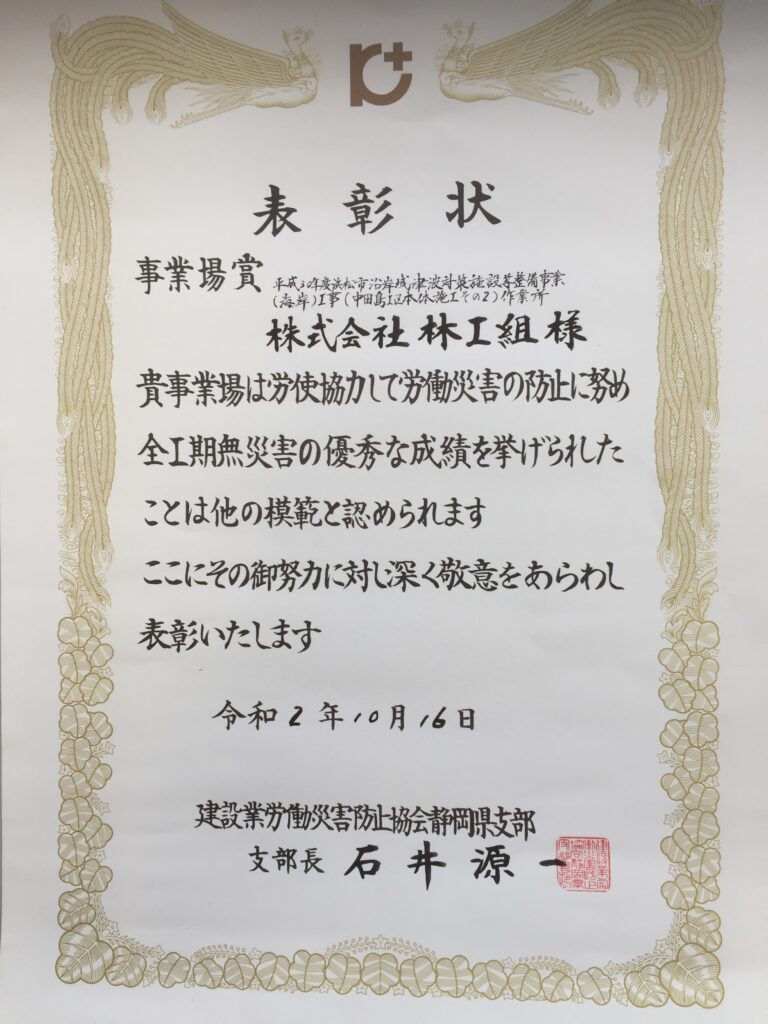 表彰状
事業場賞 平成30年度浜松市沿岸域津波対策施設等整備事業
(海岸)工事(中田島工区本体施工その2)作業所
株式会社林工組様
貴事業場は労使協力して労働災害の防止に努め
全工期無災害の優秀な成績を挙げられた
ことは他の模範と認められます
ここにその御努力に対し深く敬意をあらわし
表彰いたします
令和2年10月16日
建設業労働災害防止協会静岡県支部
支部長 石井源一